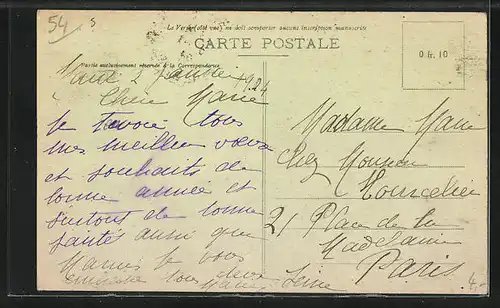 54
S
Le Verso (côté vue) ne doit comporter aucune inscription manuscrite
CARTE POSTALE
Partie exclusivement réservée à la Correspondance
0 fr. 10
2 Janvier 1924
Chere Marie
Je tavoie tous
mes meilleur vœux
et souhaits de
bonne année et
surtout de bonne
santé aussi que
Je vous
tous deux
Madame Marie
Chez Monsieur
21 Place de la
Madelaine
Paris
Seine
4.-